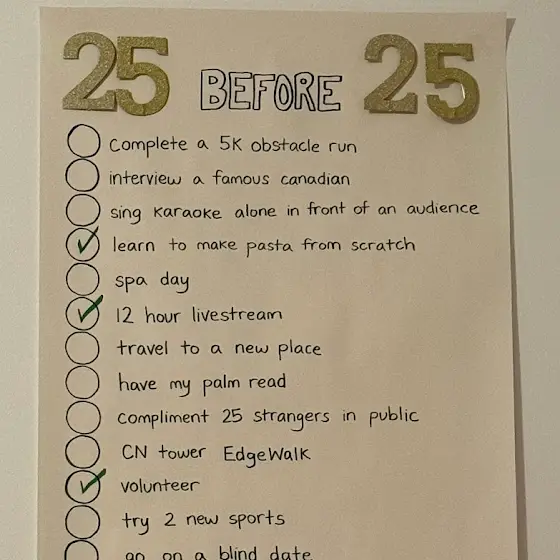 25 BEFORE 25
complete a 5K obstacle run
interview a famous canadian
sing karaoke alone in front of an audience
learn to make pasta from scratch
spa day
12 hour livestream
travel to a new place
have my palm read
compliment 25 strangers in public
CN tower EdgeWalk
volunteer
try 2 new sports
go on a blind date